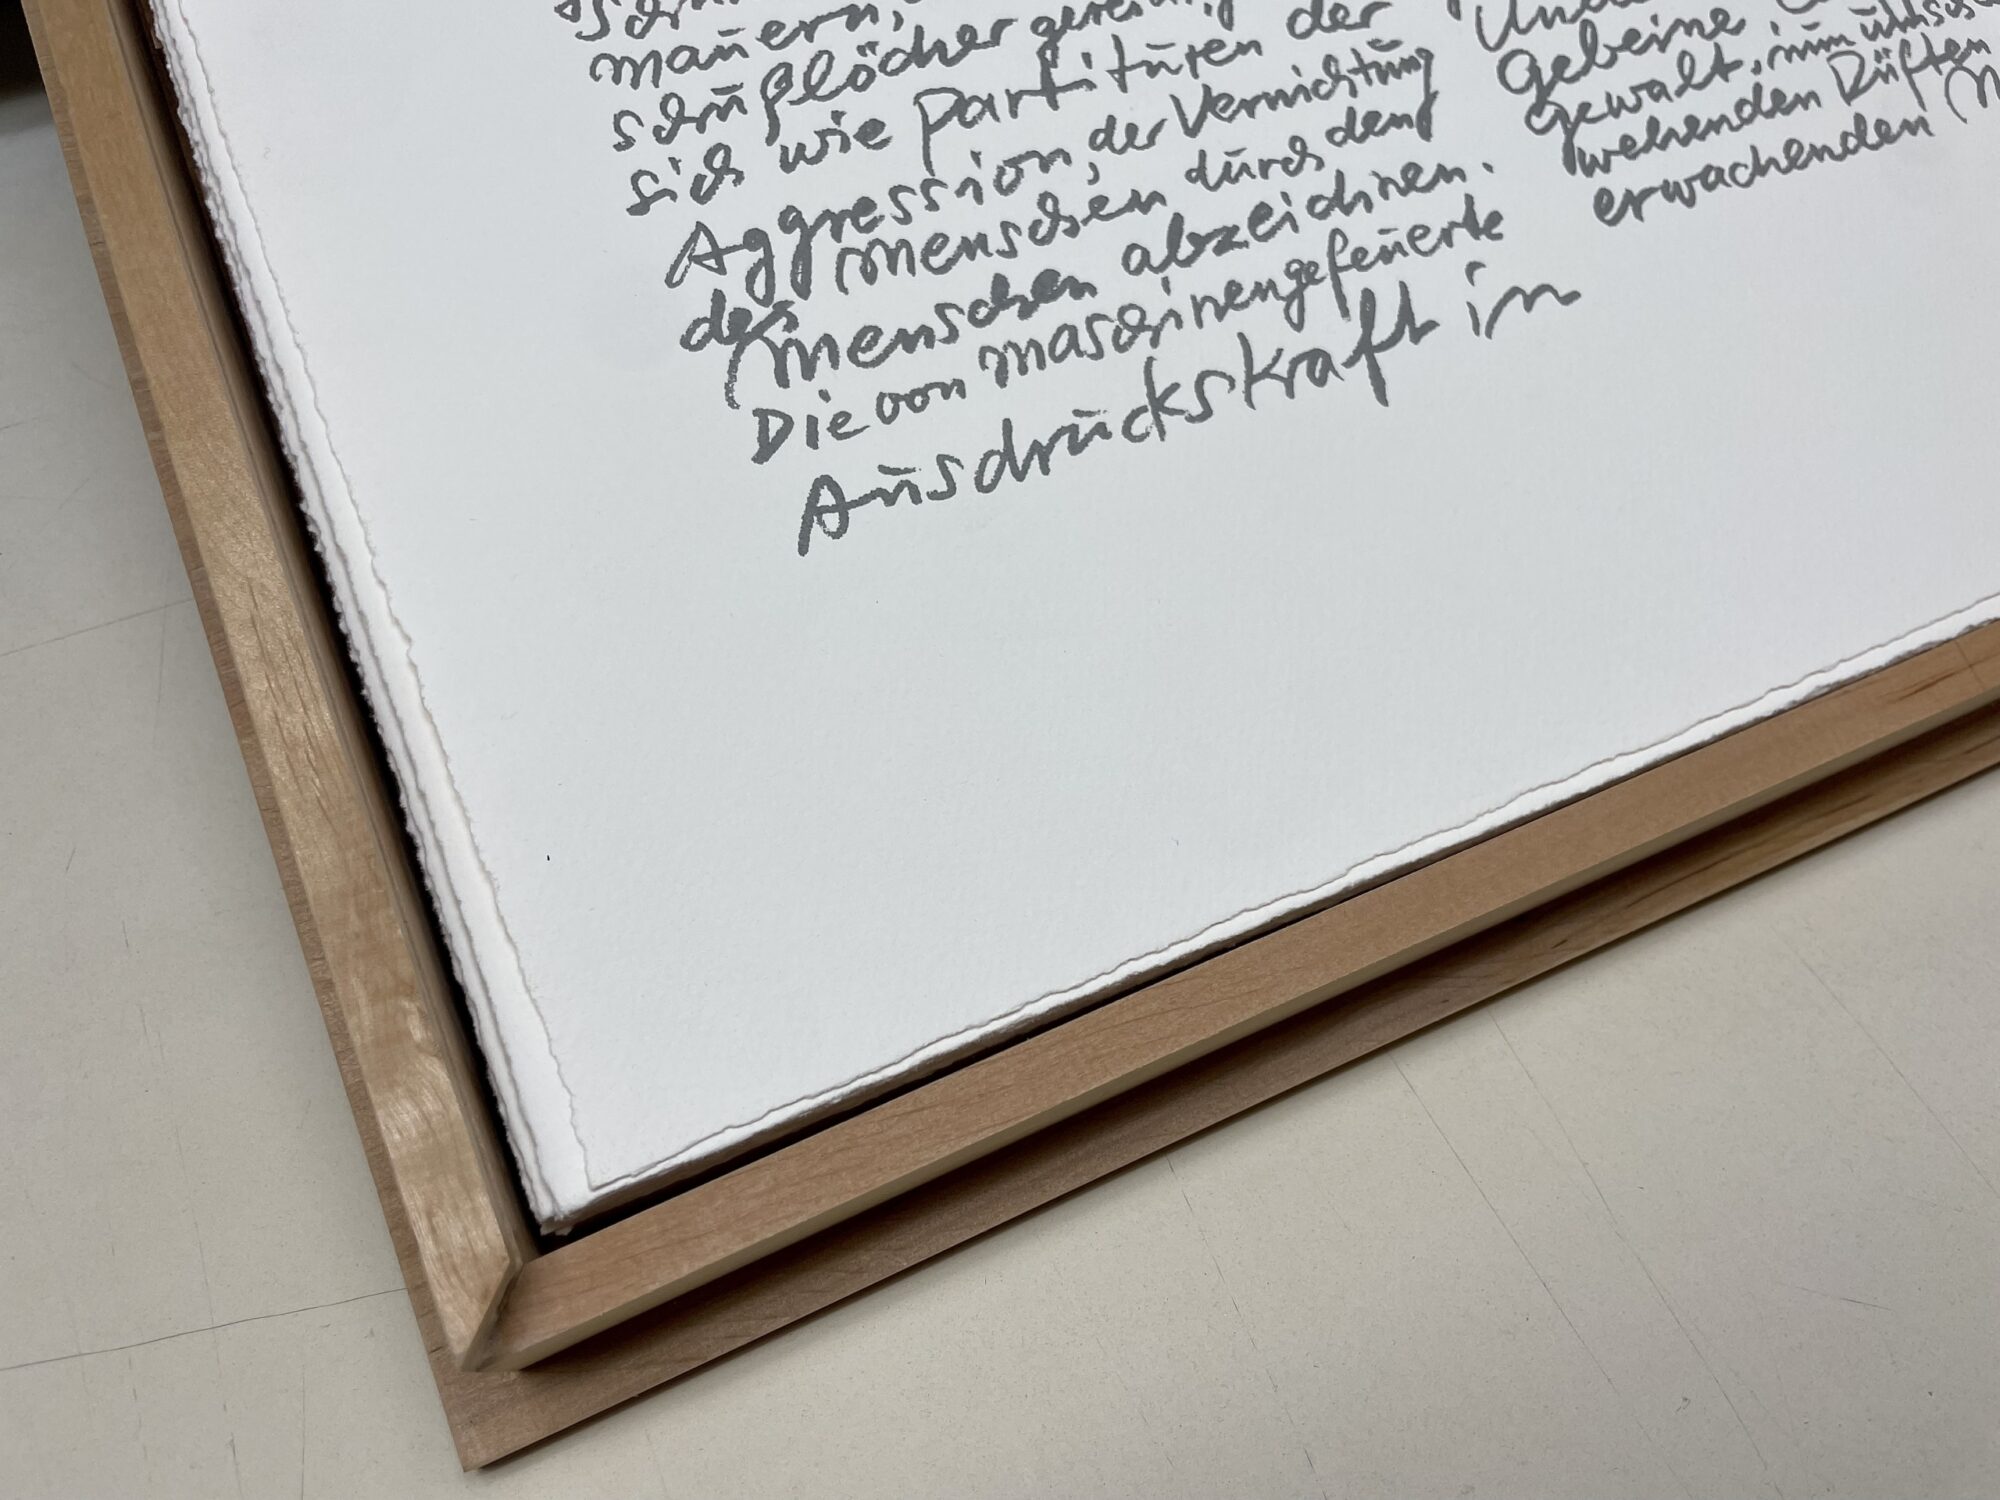 mauern,
schußlöcher
sich wie Partituren der
Aggression, der Vernichtung
des Menschen durch den
Menschen abzeichnen.
Die von maschinengefeuerte
Ausdruckskraft in
Gebeine
Gewalt,
wehenden Düften
erwachenden